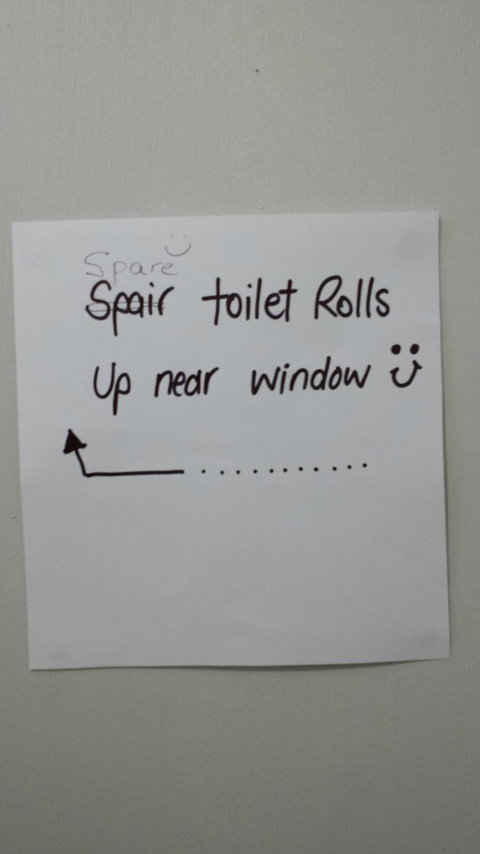 Spare
Spair toilet Rolls
Up near window